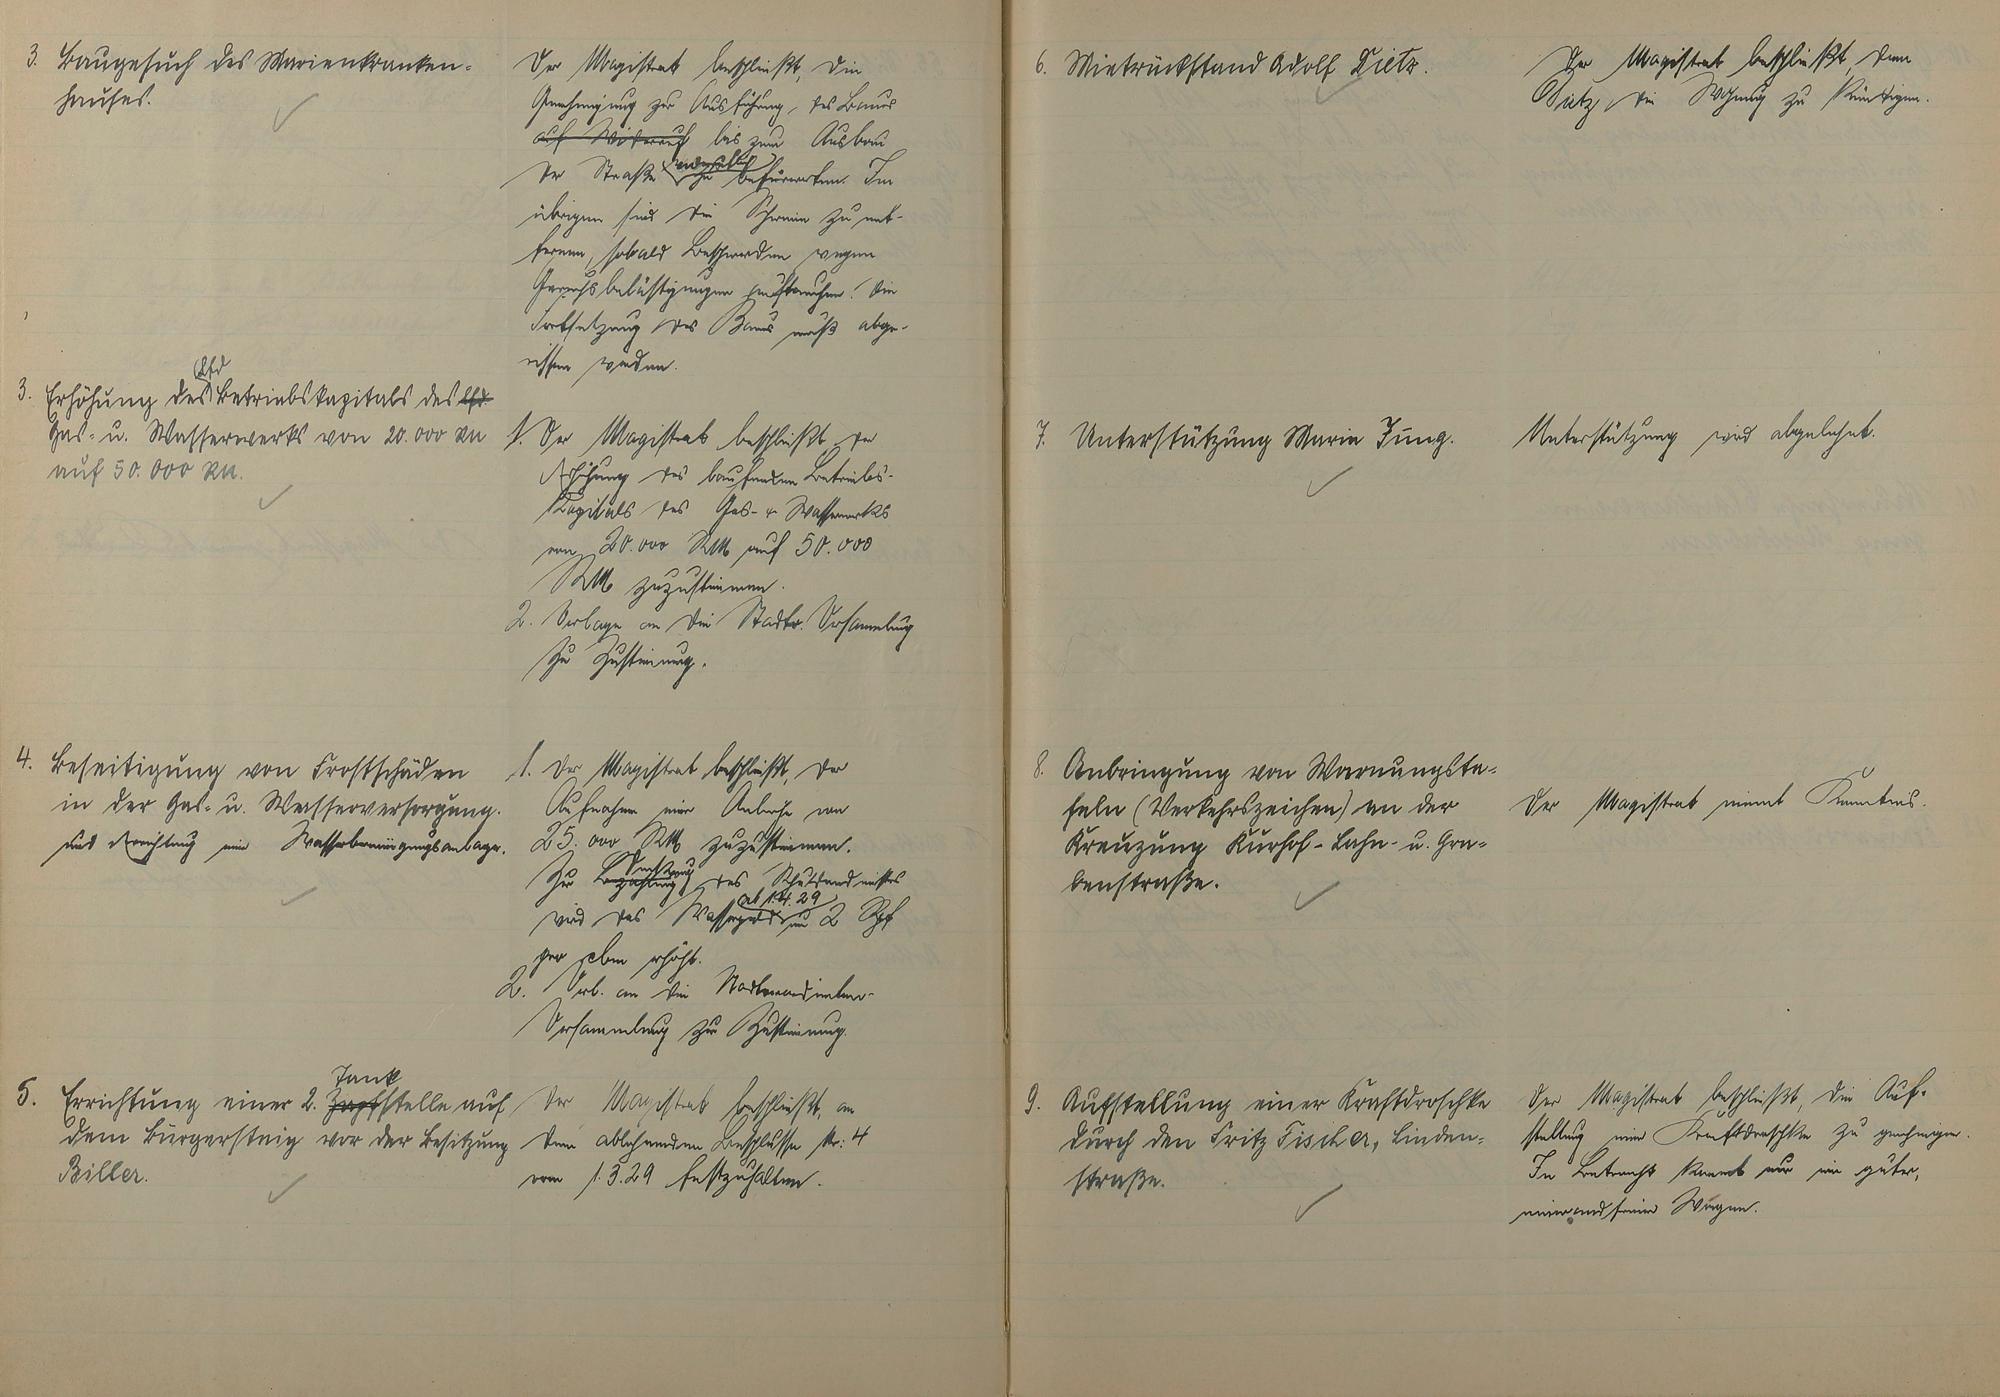 3. Baugesuch des Marienkranken-
hauses.
Der Magistrat beschließt, die
Genehmigung zur Ausführung des Baues
auf Widerruf bis zum Ausbau
der Straße zu befürworten. Im
übrigen sind die Schweine zu ent-
fernen, sobald Beschwerden wegen
Geruchsbelästigungen auftauchen. Die
Fortsetzung des Baues muß abge-
rissen werden.
3. Erhöhung des lfd Betriebskapitals des lfd.
Gas- u. Wasserwerks von 20.000 RM
auf 50.000 RM.
1. Der Magistrat beschließt der
Erhöhung des laufenden Betriebs-
Kapitals des Gas- u. Wasserwerks
von 20.000 RM auf 50.000
RM zuzustimmen.
2. Vorlage an die Stadtv. Versammlung
zur Zustimmung.
4. Beseitigung von Frostschäden
in der Gas- u. Wasserversorgung.
und Errichtung einer Wasserreinigungsanlage.
1. Der Magistrat beschließt, der
Aufnahme einer Anleihe von
25.000 RM zuzustimmen.
Zur Deckung des Schuldendienstes
wird das Wassergeld ab 1.4.29 um 2 Rpf
per cbm erhöht.
2. Vorl. an die Stadtverordneten-
Versammlung zur Zustimmung.
5. Errichtung einer 2. Zapf Tankstelle auf
dem Bürgersteig vor der Besitzung
Biller.
Der Magistrat beschließt, an
dem ablehnenden Beschlusse Nr: 4
vom 1.3.29 festzuhalten.
6. Mietrückstand Adolf Dietz.
Der Magistrat beschließt, dem
Dietz die Wohnung zu kündigen.
7. Unterstützung Maria Jung.
Unterstützung wird abgelehnt.
8. Anbringung von Warnungsta-
feln (Verkehrszeichen) an der
Kreuzung Kurhof- Bahn- u. Gra-
benstraße.
Der Magistrat nimmt Kenntnis.
9. Aufstellung einer Kraftdroschke
durch den Fritz Fischer, Linden-
straße.
Der Magistrat beschließt, die Auf-
stellung einer Kraftdroschke zu genehmigen.
In Betracht kommt nur ein guter,
einwandfreier Wagen.